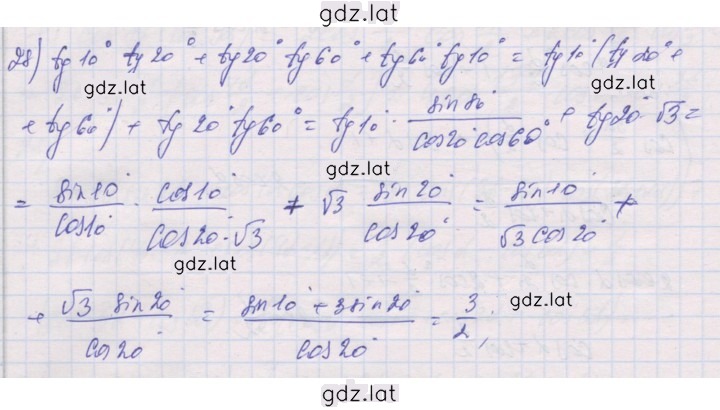 gdz.lat
28) tg10° tg20° + tg20° tg60° + tg60° tg10° = tg10° (tg20° +
gdz.lat
gdz.lat
+ tg60°) + tg20° tg60° = tg10° · sin80° / cos20° cos60° + tg20° · √3 =
= sin10° / cos10° · cos10° / cos20° · √3 + √3 sin20° / cos20° = sin10° / √3 cos20° +
gdz.lat
gdz.lat
+ √3 sin20° / cos20° = sin10° + 3sin20° / cos20° = 3/2;
gdz.lat